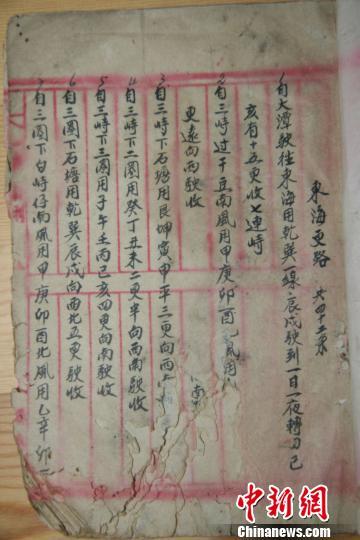 東海更路 共四十二条
1自大潭駛往東海用乾巽線辰戌駛到一日一夜轉刀己
亥有十五更收七連峙
2自三峙过干豆南風用甲庚卯酉 風用
更遠向西駛收
3自三峙下石塘用艮坤寅甲平三更向西
4自三峙下二圈用癸丁丑未二更半向西南駛收
5自三峙下三圈用子午壬丙己亥四更向南駛收
6自三圈下石塘用乾巽辰戌向西北五更駛收
7自三圈下白峙仔南風用甲庚卯酉北風用乙辛卯
南
中新网
www.
Chinanews.com